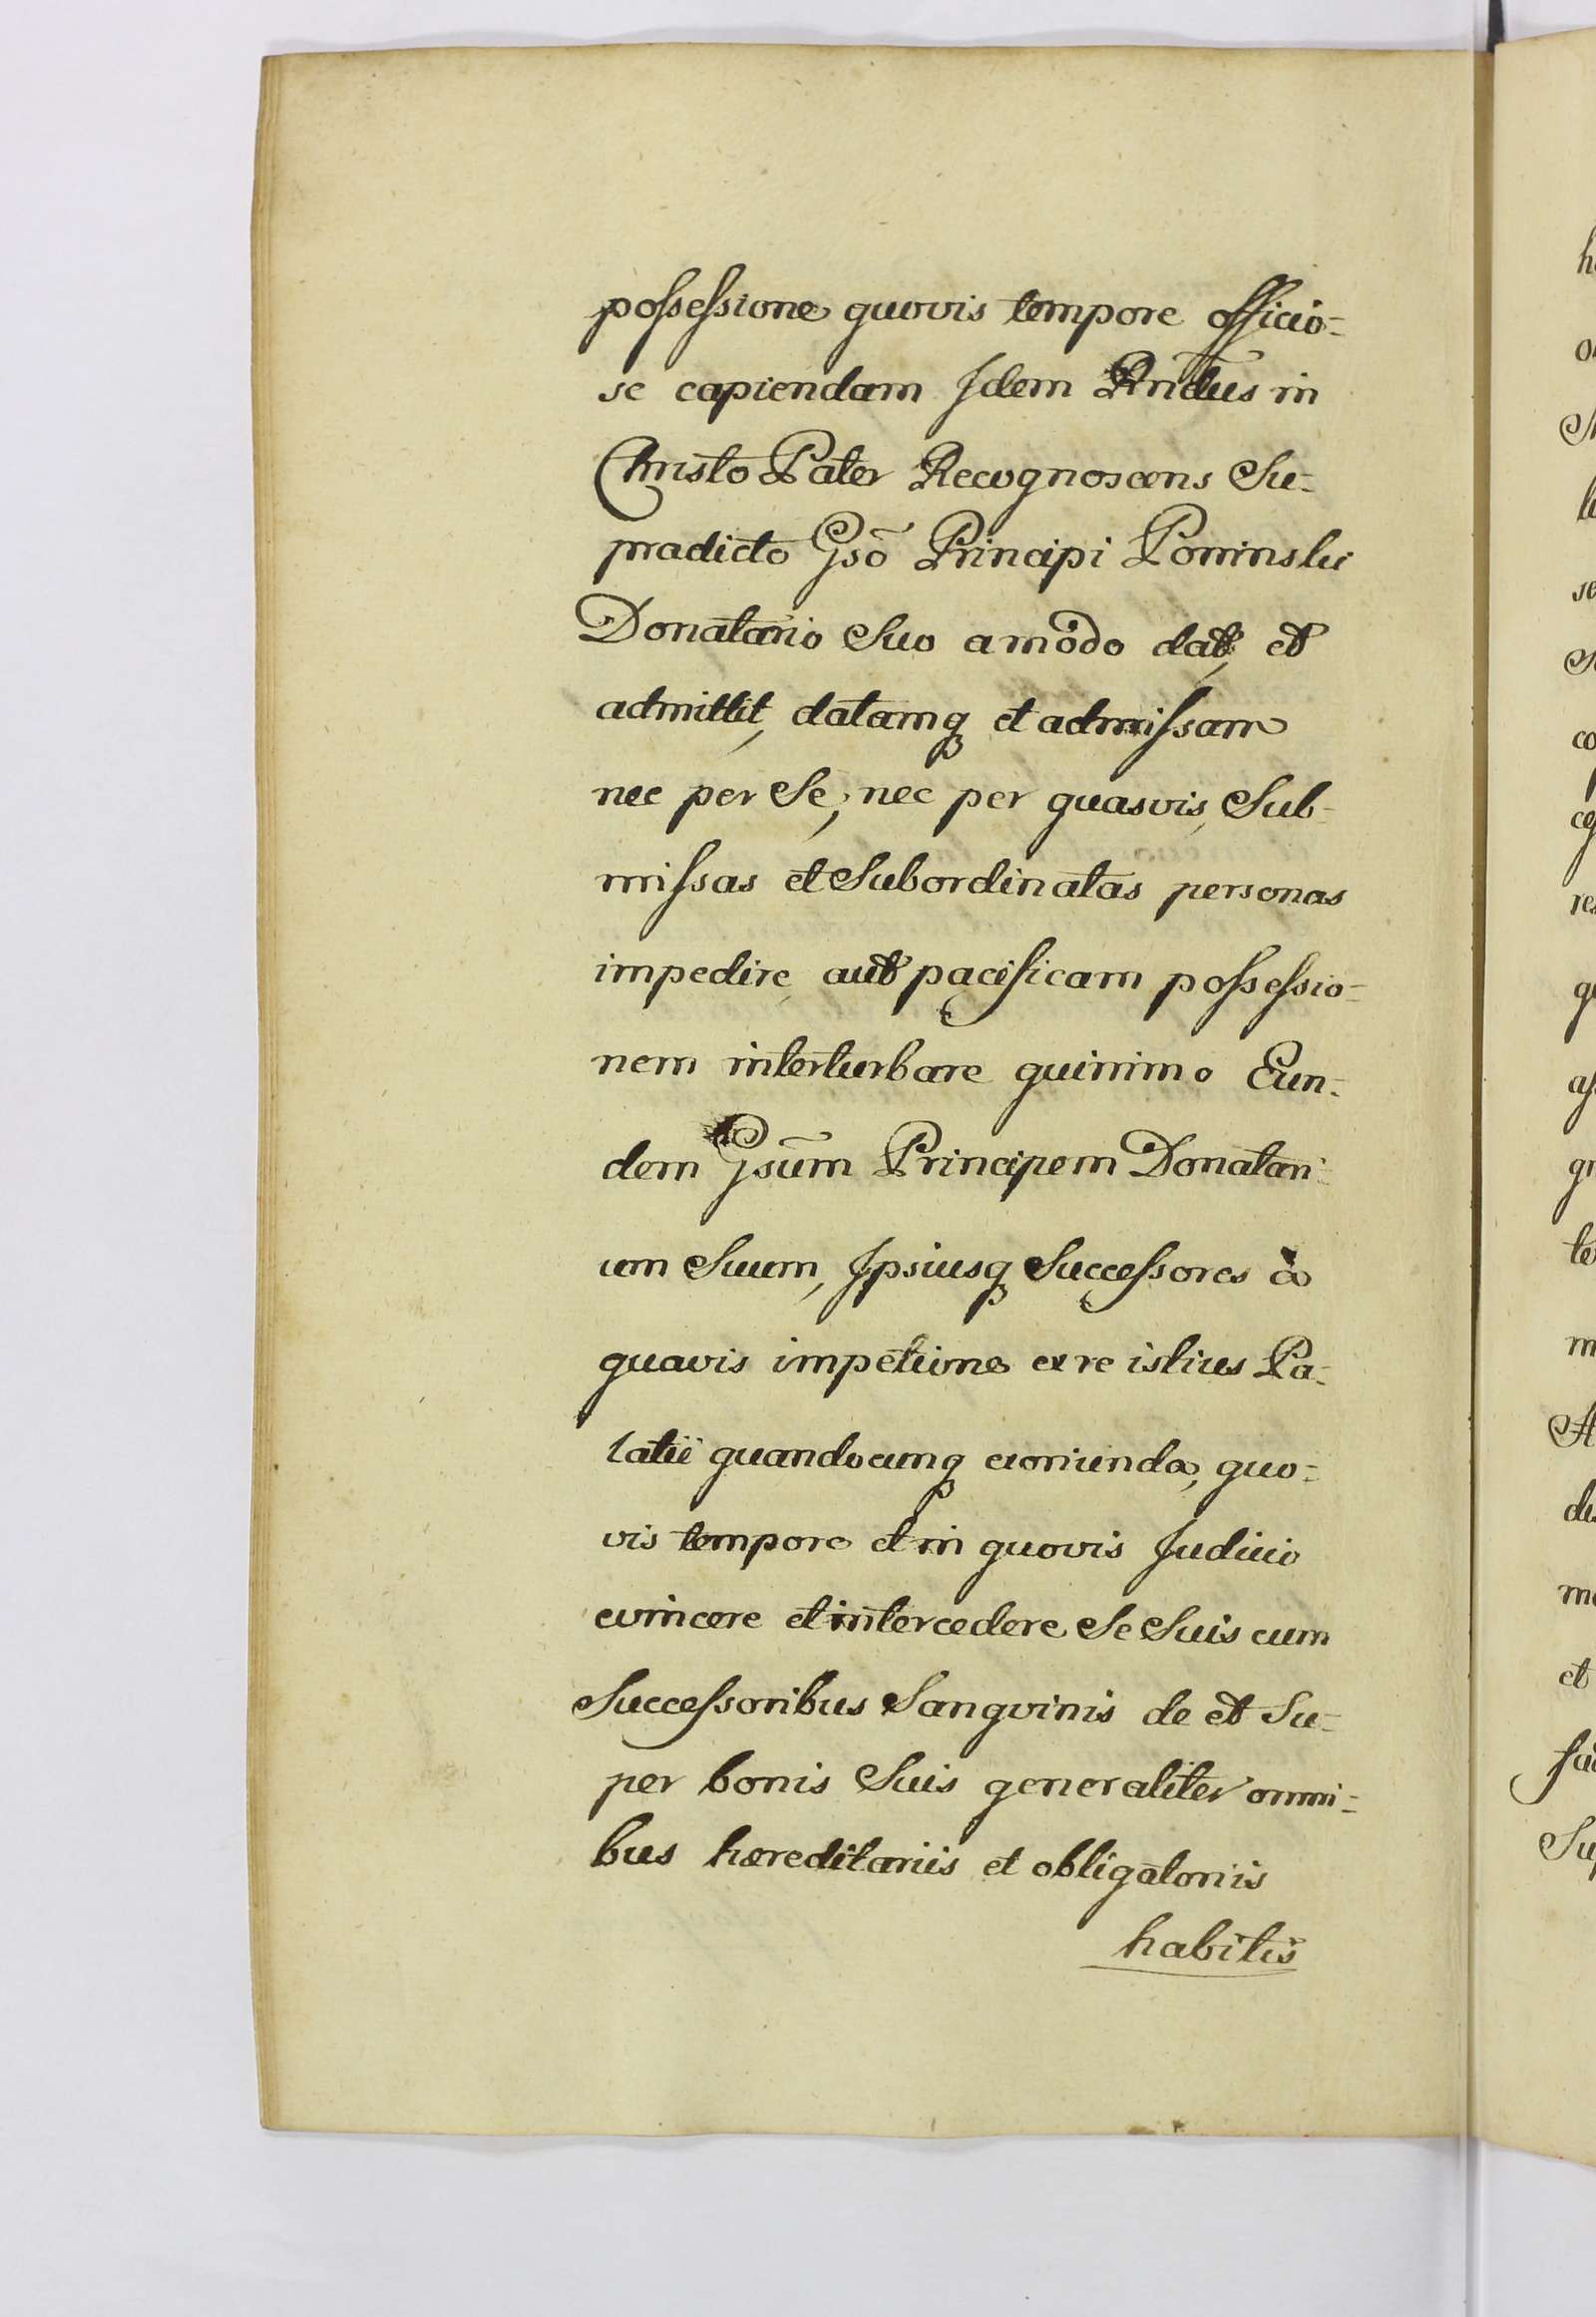 possessione quovis tempore officio=
se capiendam Idem Rndus in
Christo Pater Recognoscens Su=
pradicto Gsõ Principi Poninski
Donatario Suo amodo dat, et
admittit, datamq et admissam
nec per Se, nec per quasvis Sub-
missas et Subordinatas personas
impedire aut pacificam possessio=
nem interturbare quinimo Eun=
dem Gsum Principem Donatari=
um Suum, Ipsiusq Successores à
quavis impetione ex re istius Pa=
latii quandocunq exoriunda, quo=
vis tempore et in quovis Judicio
evincere et intercedere Se Suis cum
Successoribus Sangvinis de et Su=
per bonis Suis generaliter omni=
bus hæreditariis et obligatoriis
habitis